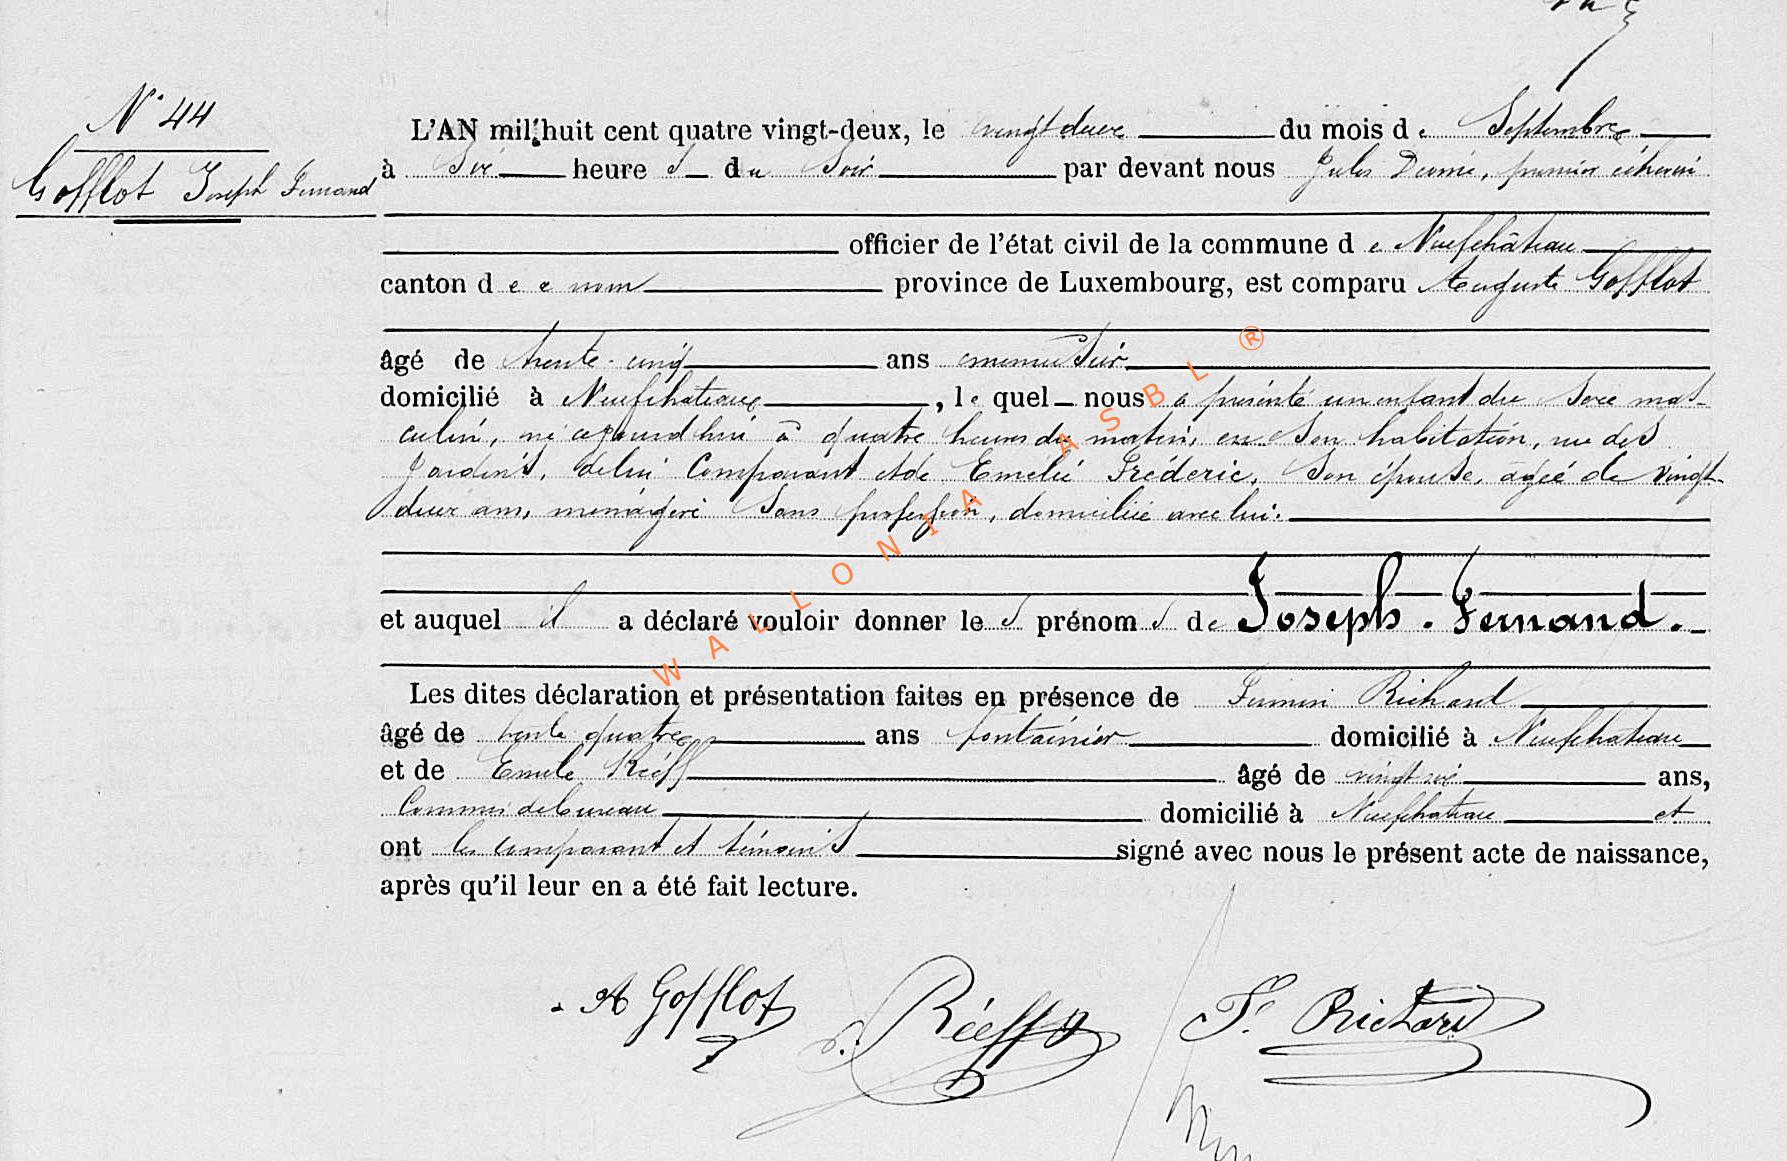 N° 44
Gofflot Joseph Fernand
L'AN mil huit cent quatre vingt-deux, le vingt deux du mois de Septembre
à Six heure s du Soir par devant nous Jules premier échevin
officier de l'état civil de la commune de Neufchâteau
canton de ce nom province de Luxembourg, est comparu Auguste Gofflot
âgé de trente-cinq ans menuisier
domicilié à Neufchateau, le quel nous a présenté un enfant du sexe mas-
culin, né aujourd'hui à quatre heures du matin, en son habitation, rue des
Jardins, de lui Comparant et de Emélie Fréderic, Son épouse, agée de vingt-
deux ans, ménagère Sans profession, domiciliée avec lui.
et auquel il a déclaré vouloir donner le s prénom s de Joseph. Fernand.
Les dites déclaration et présentation faites en présence de Firmin Richard
âgé de trente quatre ans fontainier domicilié à Neufchateau
et de Emile Réeff âgé de vingt six ans,
Commis de bureau domicilié à Neufchateau et
ont les comparant et témoins signé avec nous le présent acte de naissance,
après qu'il leur en a été fait lecture.
A Gofflot Réeff F. Richard
WALLONIA ASBL ®